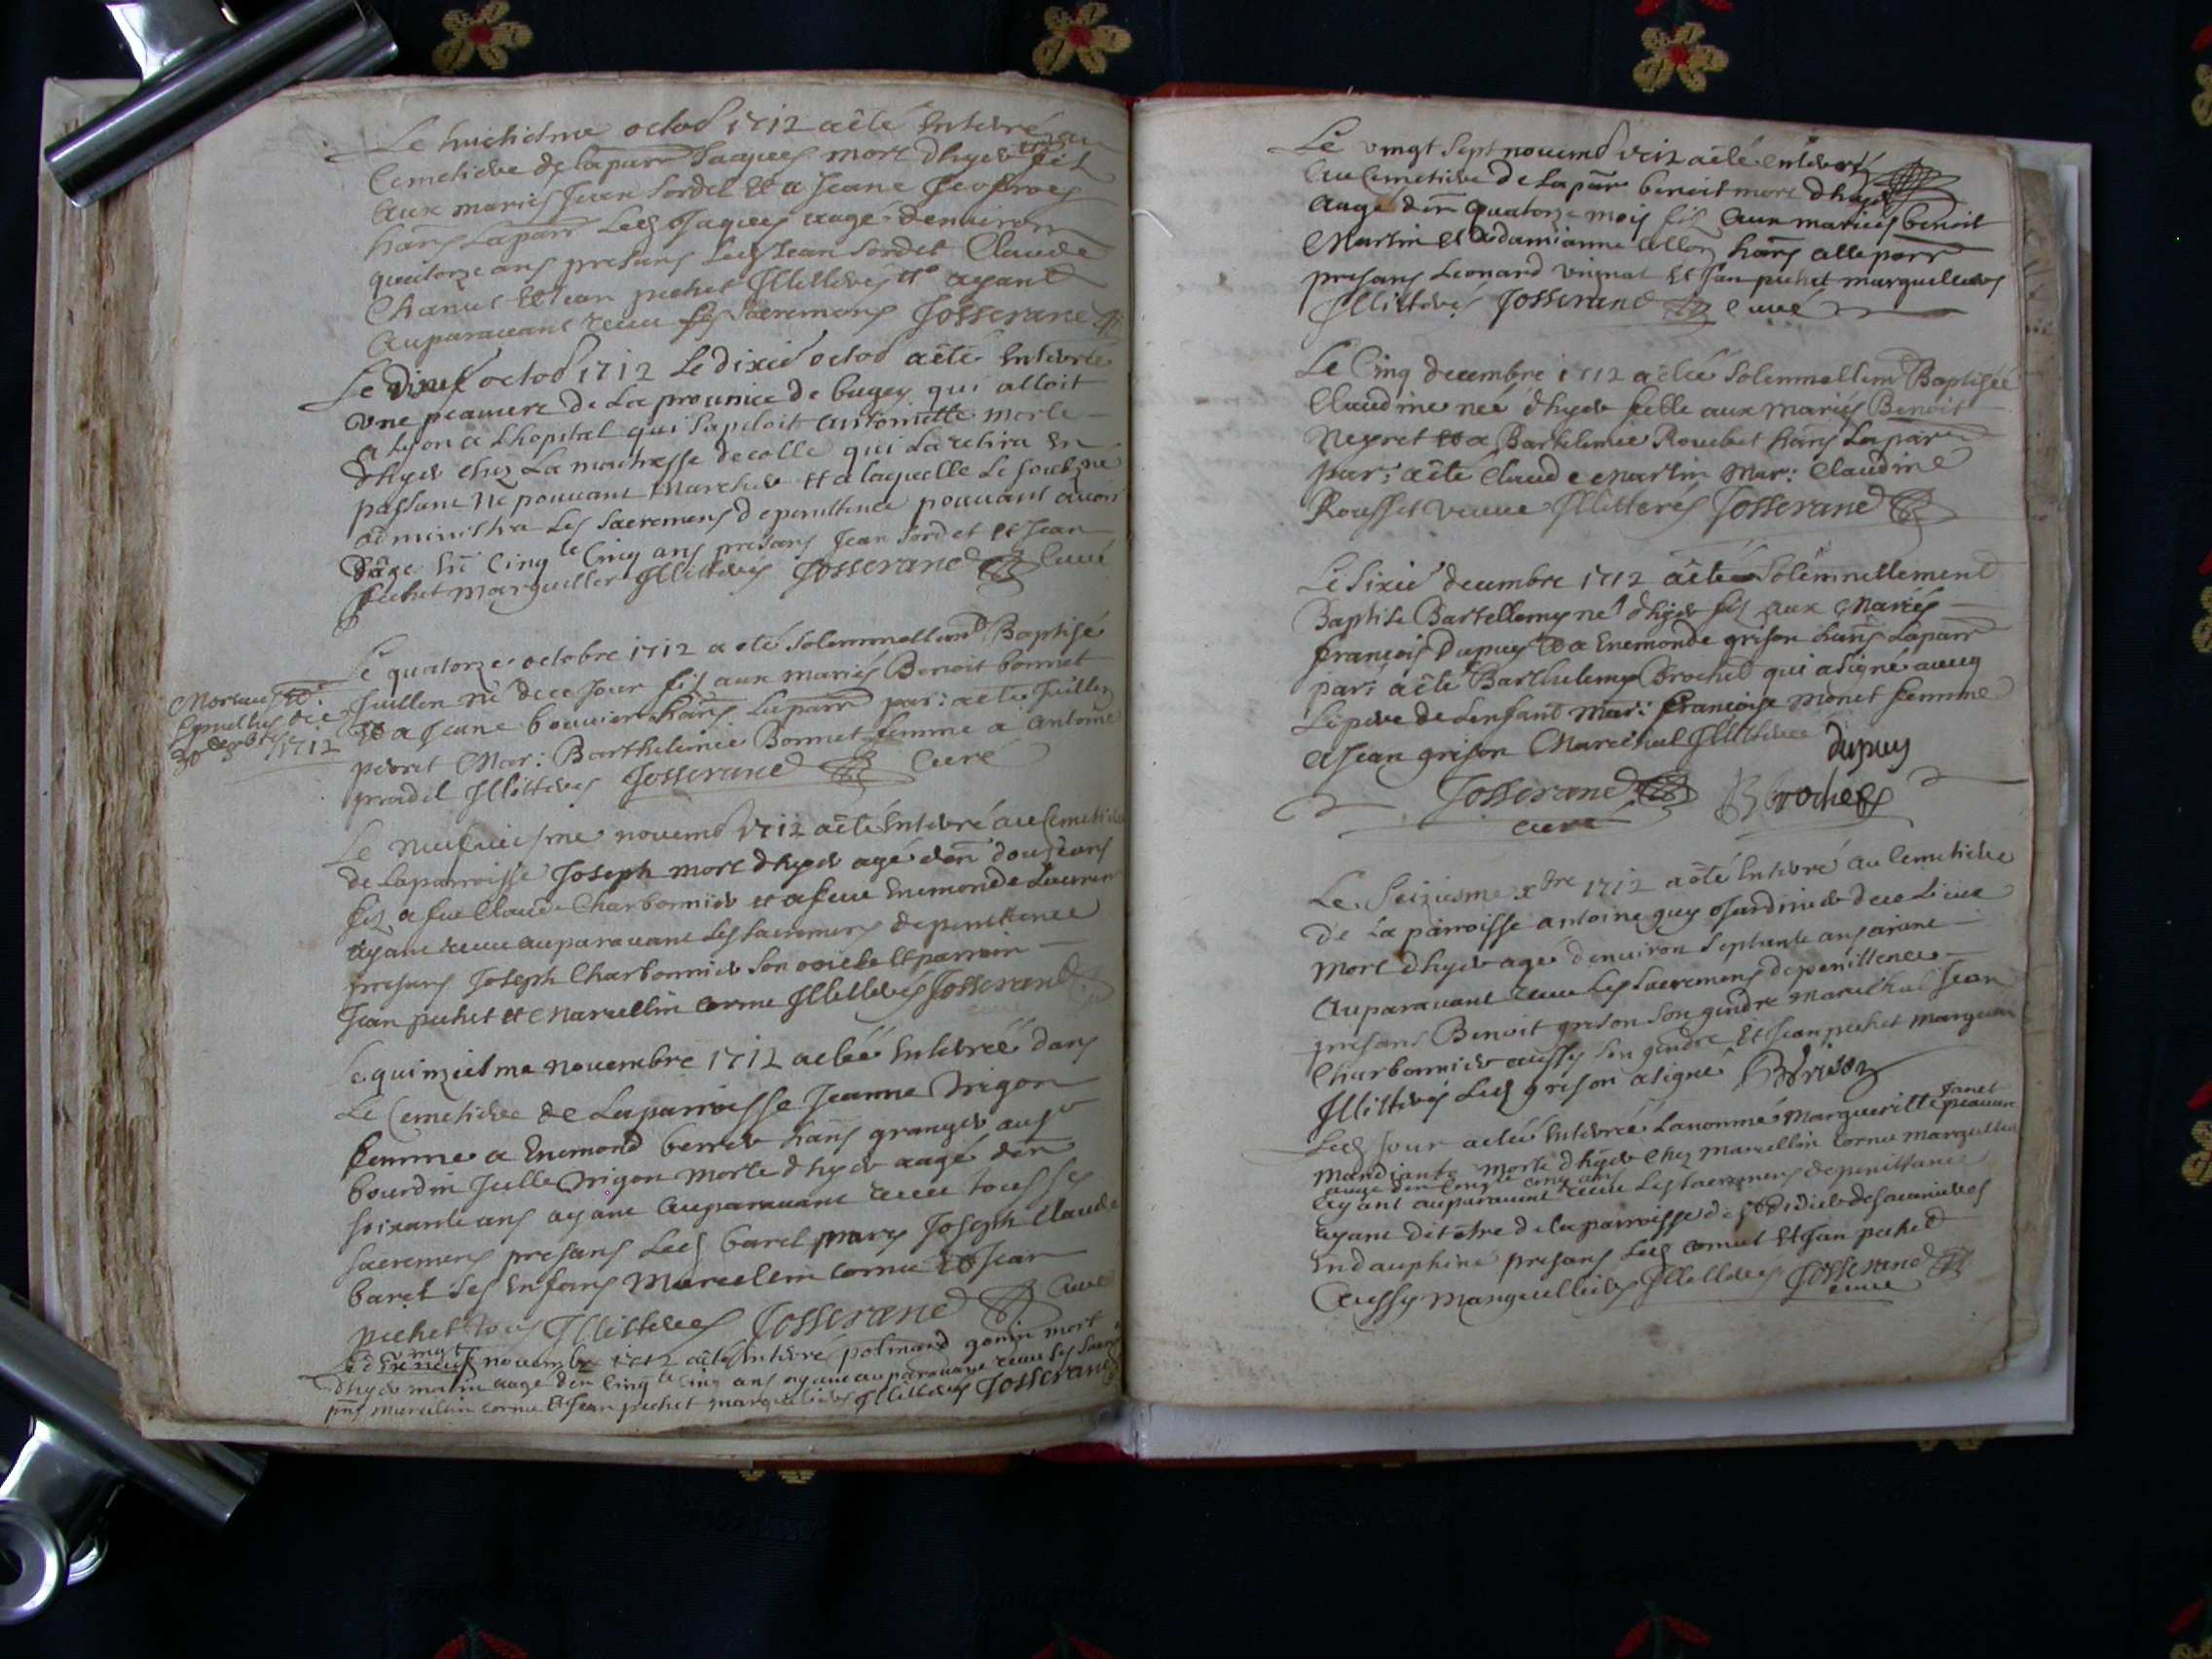 Le huictiesme octob 1712 a êté Enterré au
Cemetiere de la parr Jacques mort dhyer fils
aux mariés Jean Sordet et a Jeane
hañs la parr Led Jaques aagé denviron
quatorze ans presans Led Jean Sordet Claude
Chanut et Jean pechet Illitterés et ayant
auparavant receu ses sacremens Josserand
Le octob 1712 Le dixie octob a êté Enterrée
une peauvre de La province de bugey qui alloit
a Lyon a Lhopital qui sapeloit antoinette morte
dhyer chez La maitresse decolle qui La retira En
passant Ne pouvant Marcher et a laquelle Le soubzne
administra Les Sacremens de penittence pouvant avoir
dâge Eñ Cinqte Cinq ans presans Jean Sordet et Jean
pechet marguiller Illitterés Josserand Curé
Le quatorze octobre 1712 a eté Solemnellemt Baptisé
Jullien né de ce Jour fils aux mariés Benoit bonnet
et a Jeane bouvier hañs La parr par: a eté Jullien
perret Mar: Barthelemie Bonnet femme a Antoine
pradel Illitterés Josserand Curé
Moreus
Sepultus die
30 1712
Le neufviesme novemb 1712 a êté Enterré au Cemetiere
de La parroisse Joseph mort dhyer agé deñ douze ans
fils a feu Claude Charbonnier et a feue Enemonde Laurent
ayant receu auparavant Les sacremens de penittence
presans Joseph Charbonnier son oncle et parrain
Jean pechet et Marcellin cornu Illitterés Josserand
Le quinziesme novembre 1712 a etée Enterrée dans
Le Cemetiere de La parroisse Jeanne Trigon
femme a Enemond barret hañs granger au sr
bourdin Jelle Trigon morte dhyer aagé deñ
soixante ans ayant auparavant receu tous ses
sacremens presans Led baret mary Joseph Claude
baret ses Enfans Marcelin cornu et Jean
pechet tous Illitterés Josserand Curé
Le vingt novembre 1712 a êté Enterré gonin mort
dhyer matin aagé deñ Cinqte Cinq ans ayant auparavant receu ses sacr
pñs Marcellin cornu et Jean pechet marguilliers Illitterés Josserand
Le vingt Sept novemb 1712 a êté enterré
au Cemetiere de La parr benoit mort dhyer
aagé deñ quatorze mois fils aux mariés benoit
Martin et a damianne collon hañs alle parr
presans Leonard vignat et Jean pechet marguilliers
Illitterés Josserand Curé
Le Cinq decembre 1712 a etée Solemnellemt Baptisée
Claudine neé dhyer fille aux mariés Benoit
Neyret et a Bartelemie Roubet hañs La parr
par: a êté Claude Martin Mar: Claudine
Rousset veuve Illitterés Josserand
Le Sixie decembre 1712 a êté Solemnellement
Baptise Bartellemy né dhyer fils aux Mariés
françois Dupuy et a Enemonde grison hañs La parr
par: a êté Barthelemy Brochet qui a signé avecq
Le pere de Lenfant Mar: françoise Monet femme
a Jean grison Marechal Illitteree dupuy
Josserand B Brochet
curé
Le Seiziesme xbre 1712 a êté Enterré au Cemetiere
de La parroisse antoine guy Jardinier de ce Lieu
mort dhyer agé denviron Septante ans aiant
auparavant receu Les sacremens de penittence
presans Benoit grison son gendre marechal Jean
Charbonnier aussy son gendre et Jean pechet marguiller
Illitterés Led grison a signé Grison
Led Jour a etée Enterrée La nommé Margueritte Janet peauvre
mandiante morte dhyer Chez Marcellin Cornu marguiller
aagé deñ Cinqte cinq ans
ayant auparavant receu Les sacremens de penittance
ayant dit être de la parroisse de St didier
En dauphiné presans Led cornut et Jean pechet
aussy marguilliers Illitterés Josserand
curé